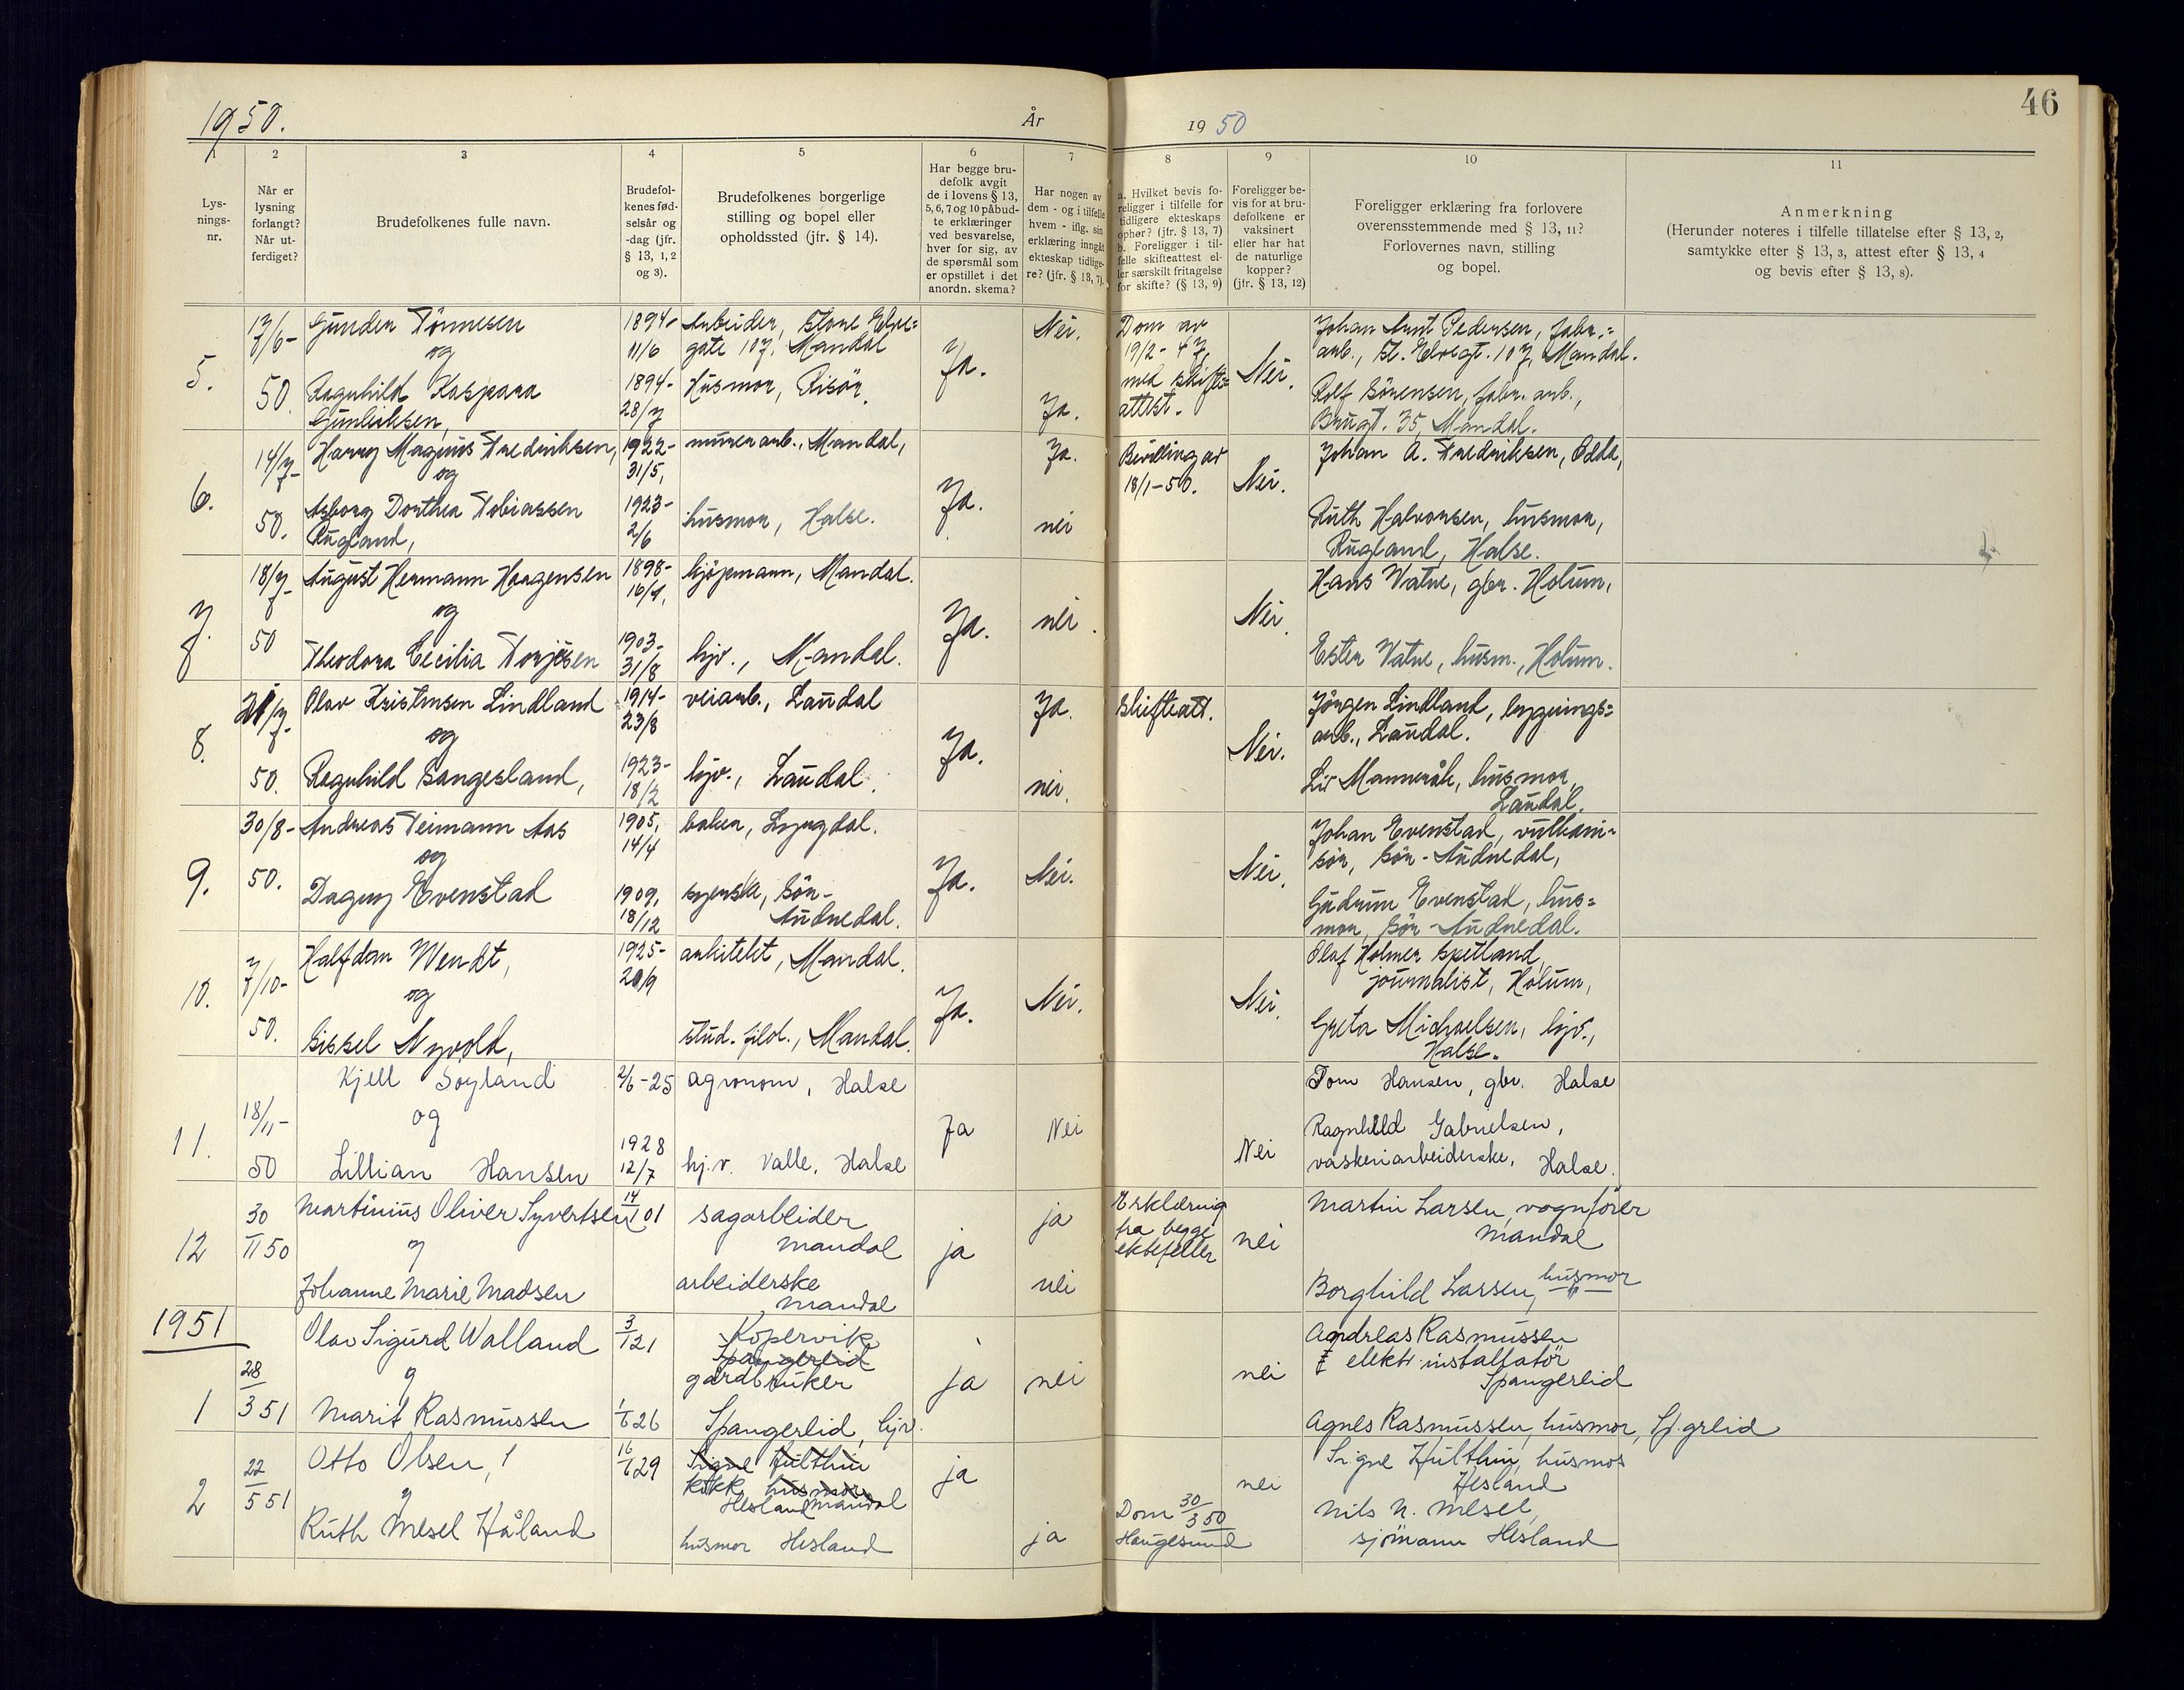 46
1950.
År
19 50
1
2
3
4
5
6
7
8
9
10
11
Lys-
nings-
nr.
Når er
lysning
forlangt?
Når ut-
ferdiget?
Brudefolkenes fulle navn.
Brudefol-
kenes fød-
selsår og
-dag (jfr.
§ 13, 1, 2
og 3).
Brudefolkenes borgerlige
stilling og bopel eller
opholdssted (jfr. § 14).
Har begge bru-
defolk avgit
de i lovens § 13,
5, 6, 7 og 10 påbud-
te erklæringer
ved besvarelse,
hver for sig, av
de spørsmål som
er opstillet i det
anordn. skema?
Har nogen av
dem - og i tilfelle
hvem - iflg. sin
erklæring inngått
ekteskap tidlige-
re? (jfr. § 13, 7).
a. Hvilket bevis fo-
religger i tilfelle for
tidligere ekteskaps
ophør? (jfr. § 13, 7)
b. Foreligger i til-
felle skifteattest el-
ler særskilt fritagelse
for skifte? (§ 13, 9)
Foreligger be-
vis for at bru-
defolkene er
vaksinert
eller har hat
de naturlige
kopper?
(jfr. § 13, 12)
Foreligger erklæring fra forlovere
overensstemmende med § 13, 11?
Forlovernes navn, stilling
og bopel.
Anmerkning
(Herunder noteres i tilfelle tillatelse efter § 13, 2,
samtykke efter § 13, 3, attest efter § 13, 4
og bevis efter § 13, 8).
5.
17/6-
50.
Gunder Tönnesen
og
Ragnhild Kaspara
Gunleiksen,
1894-
11/6
1894-
28/7
Arbeider, Store Elve=
gate 107. Mandal
Husmor, Risör.
Ja.
Nei.
Ja.
Dom av
19/2-47,
med skifte=
attest.
Nei.
Johan Arnt Pedersen, fabr.=
arb., St. Elvegt. 107, Mandal.
Rolf Sörensen, fabr. arb.,
Brugt. 35, Mandal.
6.
14/7-
50.
Harry Magnus Fredriksen,
og
Asborg Dorthea Tobiassen
Rugland,
1922-
31/5,
1923-
2/6
murerarb., Mandal,
husmor, Halse.
Ja.
Ja.
nei
Bevilling av
18/1-50.
Nei.
Johan A. Fredriksen, Odda,
Ruth Halvorsen, husmor,
Rugland, Halse.
7.
18/7-
50
August Hermann Haagensen
og
Theodora Cecilia Torjesen
1898-
16/9,
1903-
31/8
kjöpmann, Mandal.
hjv., Mandal.
Ja.
nei.
Nei.
Hans Vatne, gbr. Holum,
Ester Vatne, husm., Holum.
8.
21/7-
50.
Olav Kristensen Lindland
og
Ragnhild Sangesland,
1914-
23/8
1923-
18/2
veiarb., Laudal
hjv., Laudal.
Ja.
Ja.
nei.
Skifteatt.
Nei.
Jörgen Lindland, bygnings=
arb., Laudal.
Liv Manneråk, husmor,
Laudal.
9.
30/8-
50.
Andreas Teimann Aas
og
Dagny Evenstad
1905,
14/4
1909,
18/12
baker, Lyngdal.
syerske, Sör-
Audnedal.
Ja.
Nei.
Nei.
Johan Evenstad, vulkani-
sör, Sör-Audnedal,
Gudrun Evenstad, hus=
mor, Sör-Audnedal.
10.
7/10-
50.
Halfdan Wendt,
og
Sissel Nyvold,
1925-
20/9
arkitekt, Mandal.
stud. filol., Mandal.
Ja.
Nei.
Nei.
Olaf Holmer Spetland,
journalist, Holum,
Greta Michaelsen, hjv.,
Halse.
11.
18/11-
50
Kjell Søyland
og
Lillian Hansen
2/6-25
1928
12/7
agronom, Halse
hj.v. Valle, Halse
Ja
Nei
Nei
Tom Hansen, gbr. Halse
Ragnhild Gabrielsen,
vaskeriarbeiderske, Halse.
12
30
11 50
Martinius Oliver Syvertsen
og
Johanne Marie Madsen
14
1 01
sagarbeider
Mandal
arbeiderske
Mandal
ja
ja
nei
Erklæring
fra begge
ektefeller
nei
Martin Larsen, vognfører
Mandal
Borghild Larsen, husmor
—"—
1951
1
28
3 51
Olav Sigurd Walland
og
Marit Rasmussen
3
1 21
1
6 26
Kopervik
Spangereid
gardbruker
Spangereid, hjv.
ja
nei
nei
Andreas Rasmussen
elektr. installatör
Spangereid
Agnes Rasmussen, husmor, Sp.greid
2
22
5 51
Otto Olsen,
og
Ruth Mesel Håland
16
1 29
Signe Hulthin
kokk husmor
Hesland Mandal
husmor Hesland
ja
ja
Dom 30
3 50
Haugesund
nei
Signe Hulthin, husmor
Hesland
Nils N. Mesel,
sjömann Hesland